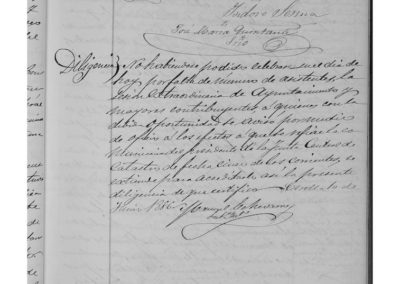 Isidoro Serna
José María Quintana
Srio
Diligencia / No habiendose podido celebrar en el día de
hoy, por falta de número de asistentes, la
sesión extraordinaria de Ayuntamiento y
mayores contribuyentes a quienes con la
debida oportunidad se avisó por medio
de oficio a los efectos a que se refiere la co
municación del presidente de la Junta Central de
Catastro de fecha cinco de los corrientes, se
extiende para acreditarlo así la presente
diligencia de que certifico
de
Junio 1886 = Manuel Echeverri